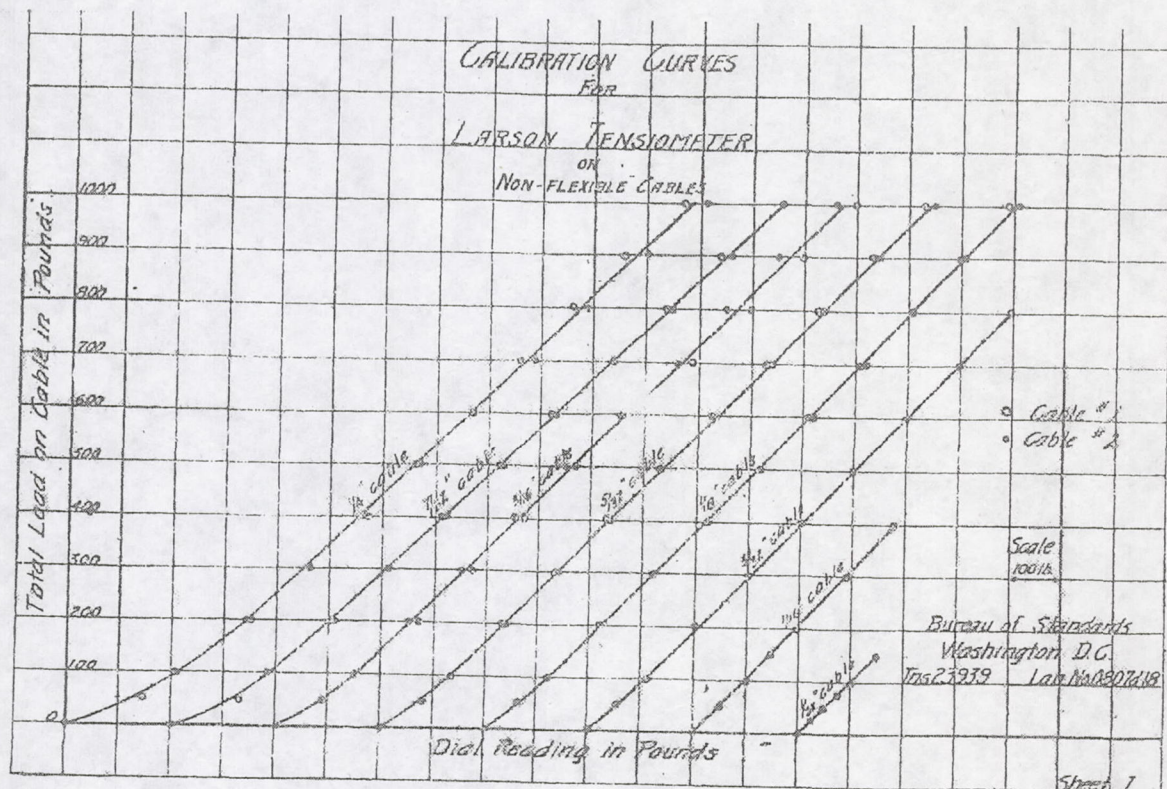 CALIBRATION CURVES
FOR
LARSON TENSIOMETER
ON
NON-FLEXIBLE CABLES
Total Load on Cable in Pounds
1000
900
800
700
600
500
400
300
200
100
0
1/4" cable
7/32" cable
3/16" cable
5/32" cable
1/8" cable
3/32" cable
1/16 cable
1/32" cable
Cable #1
Cable #2
Scale
100 lb.
Bureau of Standards
Washington D.C.
Tns23939 Lab No.
Dial Reading in Pounds
Sheet 1